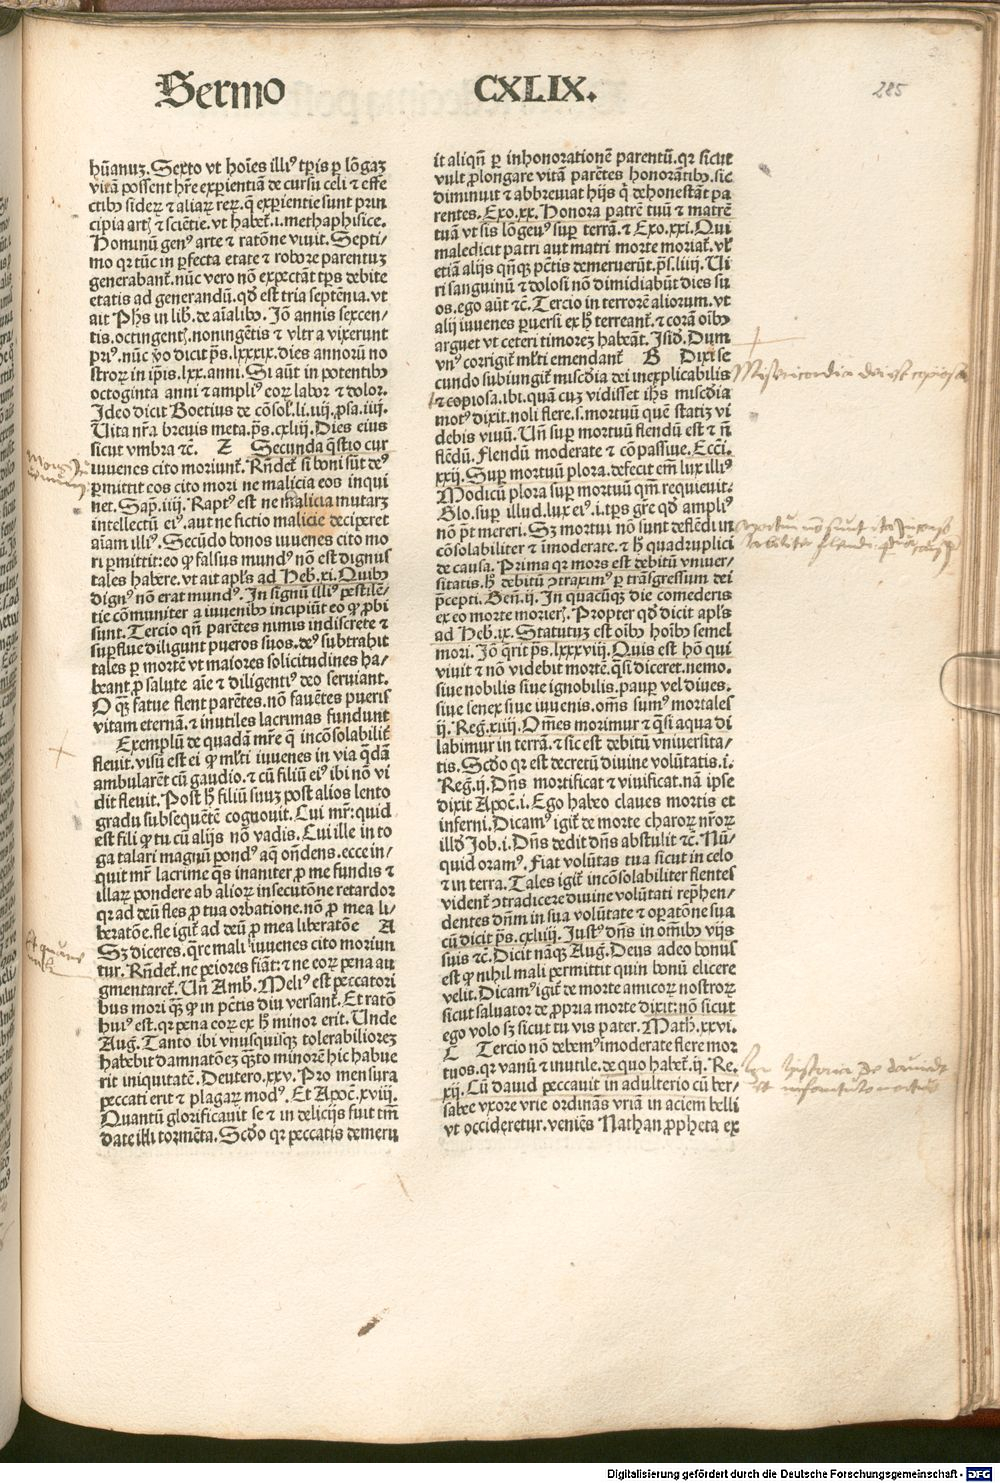 Sermo CXLIX.
285
hūanuz. Sexto vt hoīes illiꝰ tꝑis ꝑ lōgaz
vitā possent hr̄e exꝑientiā de cursu celi ⁊ effe
ctibꝫ sideꝝ ⁊ aliaꝝ reꝝ. q̄ exꝑientie sunt prin
cipia art ⁊ sciētie. vt habet̄. i. methaphisice.
Hominū genꝰ arte ⁊ ratōne viuit. Septi-
mo qꝛ tūc in ꝑfecta etate ⁊ robore parentuz
generabant̄. nūc vero nō exꝑectāt tꝑs debite
etatis ad generandū. qd̄ est tria septēnia. vt
ait Ph̄s in lib. de aīalibꝫ. Jō annis sexcen-
tis. octingent̄. noningētis ⁊ vltra vixerunt
priꝰ. nūc ꝟo dicit p̄s. lxxxix. dies annorū no
stroꝝ in ip̄is. lxx. anni. Si aūt in potentibꝫ
octoginta anni ⁊ ampliꝰ eoꝝ labor ⁊ dolor.
Jdeo dicit Boetius de cōsol. li. iiij. ꝓsa. iiij.
Uita nr̄a breuis meta. p̄s. cxliij. Dies eius
sicut vmbra ⁊c̄. Z Secunda q̄stio cur
iuuenes cito moriunt̄. Rn̄det̄ si boni sūt deꝰ
ꝑmittit eos cito mori ne malicia eos inqui
net. Sap. iiij. Raptꝰ est ne malicia mutarꝫ
intellectū eiꝰ. aut ne fictio malicie deciperet
aīam illiꝰ. Secūdo bonos iuuenes cito mo
ri ꝑmittit: eo ꝙ falsus mundꝰ nō est dignus
tales habere. vt ait apl̄s ad Heb. xi. Quibꝫ
dignꝰ nō erat mundꝰ. Jn signū illiꝰ pestilē-
tie cōmuniter a iuuenibꝫ incipiūt eo ꝙ ꝓbi
sunt. Tercio qn̄ parētes nimis indiscrete ⁊
suꝑflue diligunt pueros suos. deꝰ subtrahit
tales ꝑ mortē vt maiores solicitudines ha-
beant ꝓ salute aīe ⁊ diligentiꝰ deo seruiant.
O q̄ꝫ fatue flent parētes. nō fauētes pueris
vitam eternā. ⁊ inutiles lacrimas fundunt
Exemplū de quadā mr̄e q̄ incōsolabilit̄
fleuit. visū est ei ꝙ ml̓ti iuuenes in via q̄dā
ambularēt cū gaudio. ⁊ cū filiū eiꝰ ibi nō vi
dit fleuit. Post hͦ filiū suuz post alios lento
gradu subsequētē cognouit. Cui mr̄: quid
est fili ꝙ tu cū alijs nō vadis. Cui ille in to
ga talari magnū pondꝰ aq̄ on̄dens. ecce in-
quit mr̄ lacrime q̄s inaniter ꝓ me fundis ⁊
illaꝝ pondere ab alioꝝ insecutōne retardor
qꝛ ad deū fles ꝓ tua orbatione. nō ꝓ mea li-
beratōne. fle igit̄ ad deū ꝓ mea liberatōe A
Sꝫ diceres. q̄re mali iuuenes cito moriun
tur. Rn̄det̄. ne peiores fiāt: ⁊ ne eoꝝ pena au
gmentaret̄. Un̄ Amb. Meliꝰ est peccatori
bus mori q̄ꝫ ꝙ in pctis diu versant̄. Et ratō
huiꝰ est. qꝛ pena eoꝝ ex hͦ minor erit. Unde
Aug. Tanto ibi vnusquisqꝫ tolerabiliorez
habebit damnatōez q̄to minorē hic habue
rit iniquitatē. Deutero. xxv. Pro mensura
peccati erit ⁊ plagaꝝ modꝰ. Et Apoc. xviij.
Quantū glorificauit se ⁊ in delicijs fuit tm̄
date illi tormēta. Scd̄o qꝛ peccatis demeru
it aliqn̄ ꝑ inhonorationē parentū. qꝛ sicut
vult ꝓlongare vitā parētes honorātibꝫ. sic
diminuit ⁊ abbreuiat hijs q̄ dehonestāt pa
rentes. Exo. xx. Honora patrē tuū ⁊ matrē
tuā vt sis lōgeuꝰ suꝑ terrā. ⁊ Exo. xxi. Qui
maledicit patri aut matri morte moriat̄. vl̓
etiā alijs qn̄qꝫ pctis demeruerūt. p̄s. liiij. Ui
ri sanguinū ⁊ dolosi nō dimidiabūt dies su
os. ego aūt ⁊c̄. Tercio in terrorē aliorum. vt
alij iuuenes ꝑuersi ex hͦ terreant̄. ⁊ corā oībꝫ
arguet vt ceteri timorez habeāt. Jsid. Dum
vnꝰ corrigit̄ ml̓ti emendant̄ B Dixi se
cundo subiungit̄ miscd̄ia dei inexplicabilis
⁊ copiosa. ibi. quā cuz vidisset ih̄s miscd̄ia
motꝰ dixit. noli flere. s. mortuū quē statiz vi
debis viuū. Un̄ suꝑ mortuū flendū est ⁊ nō
flēdū. Flendū moderate ⁊ cōpassiue. Ecci.
xxij. Suꝑ mortuū plora. defecit em̄ lux illiꝰ
Modicū plora suꝑ mortuū qm̄ requieuit.
Glo. suꝑ illud. lux eiꝰ. i. tꝑs gr̄e qd̄ ampliꝰ
nō pōt mereri. Sꝫ mortui nō sunt deflēdi in
cōsolabiliter ⁊ īmoderate. ⁊ hͦ quadruplici
de causa. Prima qꝛ mors est debitū vniuer-
sitatis. hͦ debitū ꝯtraximꝰ ꝑ trāsgressum dei
p̄cepti. Gen̄. ij. Jn quacūqꝫ die comederis
ex eo morte morieꝝ. Propter qd̄ dicit apl̄s
ad Heb. ix. Statutuz est oībꝫ hoībꝫ semel
mori. Jō q̄rit p̄s. lxxxviij. Quis est hō qui
viuit ⁊ nō videbit mortē. q̄si diceret. nemo.
siue nobilis siue ignobilis. pauꝑ vel diues.
siue senex siue iuuenis. om̄s sumꝰ mortales
ij. Reg. xiiij. Om̄es morimur ⁊ q̄si aqua di
labimur in terrā. ⁊ sic est debitū vniuersita-
tis. Scd̄o qꝛ est decretū diuine volūtatis. i.
Reg. ij. Dn̄s mortificat ⁊ viuificat. nā ipse
dixit Apoc. i. Ego habeo claues mortis et
inferni. Dicamꝰ igit̄ de morte charoꝝ nr̄oꝝ
illd̄ Job. i. Dn̄s dedit dn̄s abstulit ⁊c̄. Nū-
quid oramꝰ. Fiat volūtas tua sicut in celo
⁊ in terra. Tales igit̄ incōsolabiliter flentes
vident̄ ꝯtradicere diuine volūtati rep̄hen-
dentes dn̄m in sua volūtate ⁊ oꝑatōne sua
cū dicit p̄s. cxliiij. Justꝰ dn̄s in om̄ibꝫ vijs
suis ⁊c̄. Dicit nāqꝫ Aug. Deus adeo bonus
est ꝙ nihil mali permittit quin bonū elicere
velit. Dicamꝰ igit̄ de morte amicoꝝ nostroꝝ
sicut saluator de ꝓpria morte dixit: nō sicut
ego volo sꝫ sicut tu vis pater. Math. xxvi.
C Tercio nō debemꝰ īmoderate flere mor
tuos. qꝛ vanū ⁊ inutile. de quo habet̄. ij. Re.
xij. Cū dauid peccauit in adulterio cū ber-
sabee vxore vrie ordinās vriā in aciem belli
vt occideretur. veniēs Nathan ꝓpheta ex
Misericordia dei est copiosa
Digitalisierung gefördert durch die Deutsche Forschungsgemeinschaft - DFG